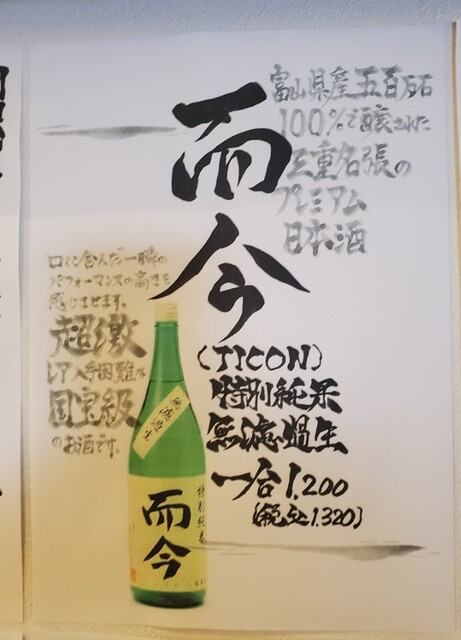 富山県産五百万石
100%で醸された
三重名張の
プレミアム
日本酒
而今
(JICON)
特別純米
無濾過生
一合1,200
(税込1,320)
口に含んだ一瞬の
パフォーマンスの高さを
感じさせます。
超激
レア入手困難な
国宝級
のお酒です。
無濾過生
特別純米
而今